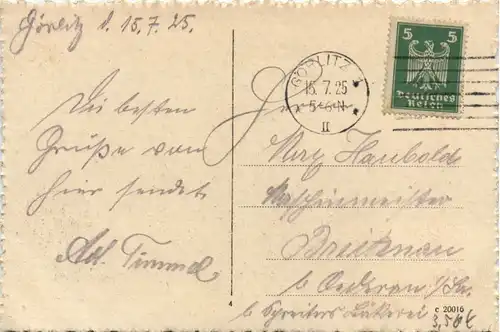 Görlitz d. 15.7.25.
Die besten
Grüße von
hier sendet
Ad. Timmel
GÖRLITZ 1
15.7.25
5-6 N
II
5 5
Deutsches
Reich
Herrn
Max Haubold
Maschinenmeister
b Oederan i/Sa.
b Schreiters
4
c 20016
3,50 €